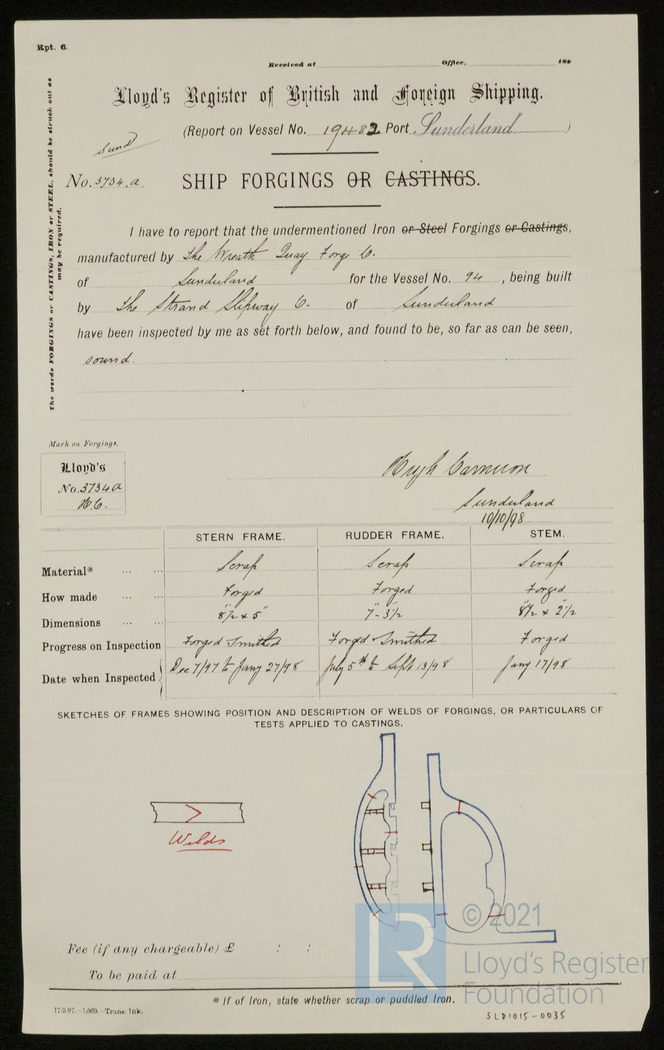 Rpt. 6.
Received at Office, 188
Lloyd's Register of British and Foreign Shipping.
(Report on Vessel No. 19482 Port Sunderland )
Sund
No. 3734.a. SHIP FORGINGS OR CASTINGS.
The words FORGINGS or CASTINGS, IRON or STEEL, should be struck out as
may be required.
I have to report that the undermentioned Iron or Steel Forgings or Castings,
manufactured by The Wreath Quay Forge Co.
of Sunderland for the Vessel No. 94, being built
by The Strand Slipway Co. of Sunderland
have been inspected by me as set forth below, and found to be, so far as can be seen,
sound.
Mark on Forgings.
Lloyd's
No. 3734a
H.C.
Hugh Cameron
Sunderland
10/10/98
STERN FRAME. RUDDER FRAME. STEM.
Material* Scrap Scrap Scrap
How made Forged Forged Forged
Dimensions 8½" x 5" 7"- 3½ 8½" x 2½"
Progress on Inspection Forged Smithed Forged Smithed Forged
Date when Inspected Dec 7/97 to Jany 27/98 July 5th to Sept 13/98 Jany 17/98
SKETCHES OF FRAMES SHOWING POSITION AND DESCRIPTION OF WELDS OF FORGINGS, OR PARTICULARS OF
TESTS APPLIED TO CASTINGS.
Welds
Fee (if any chargeable) £ : :
To be paid at
* If of Iron, state whether scrap or puddled Iron.
17.9.97.—1,000.—Trans. Ink.
SLD1015-0035
LR
© 2021
Lloyd's Register
Foundation